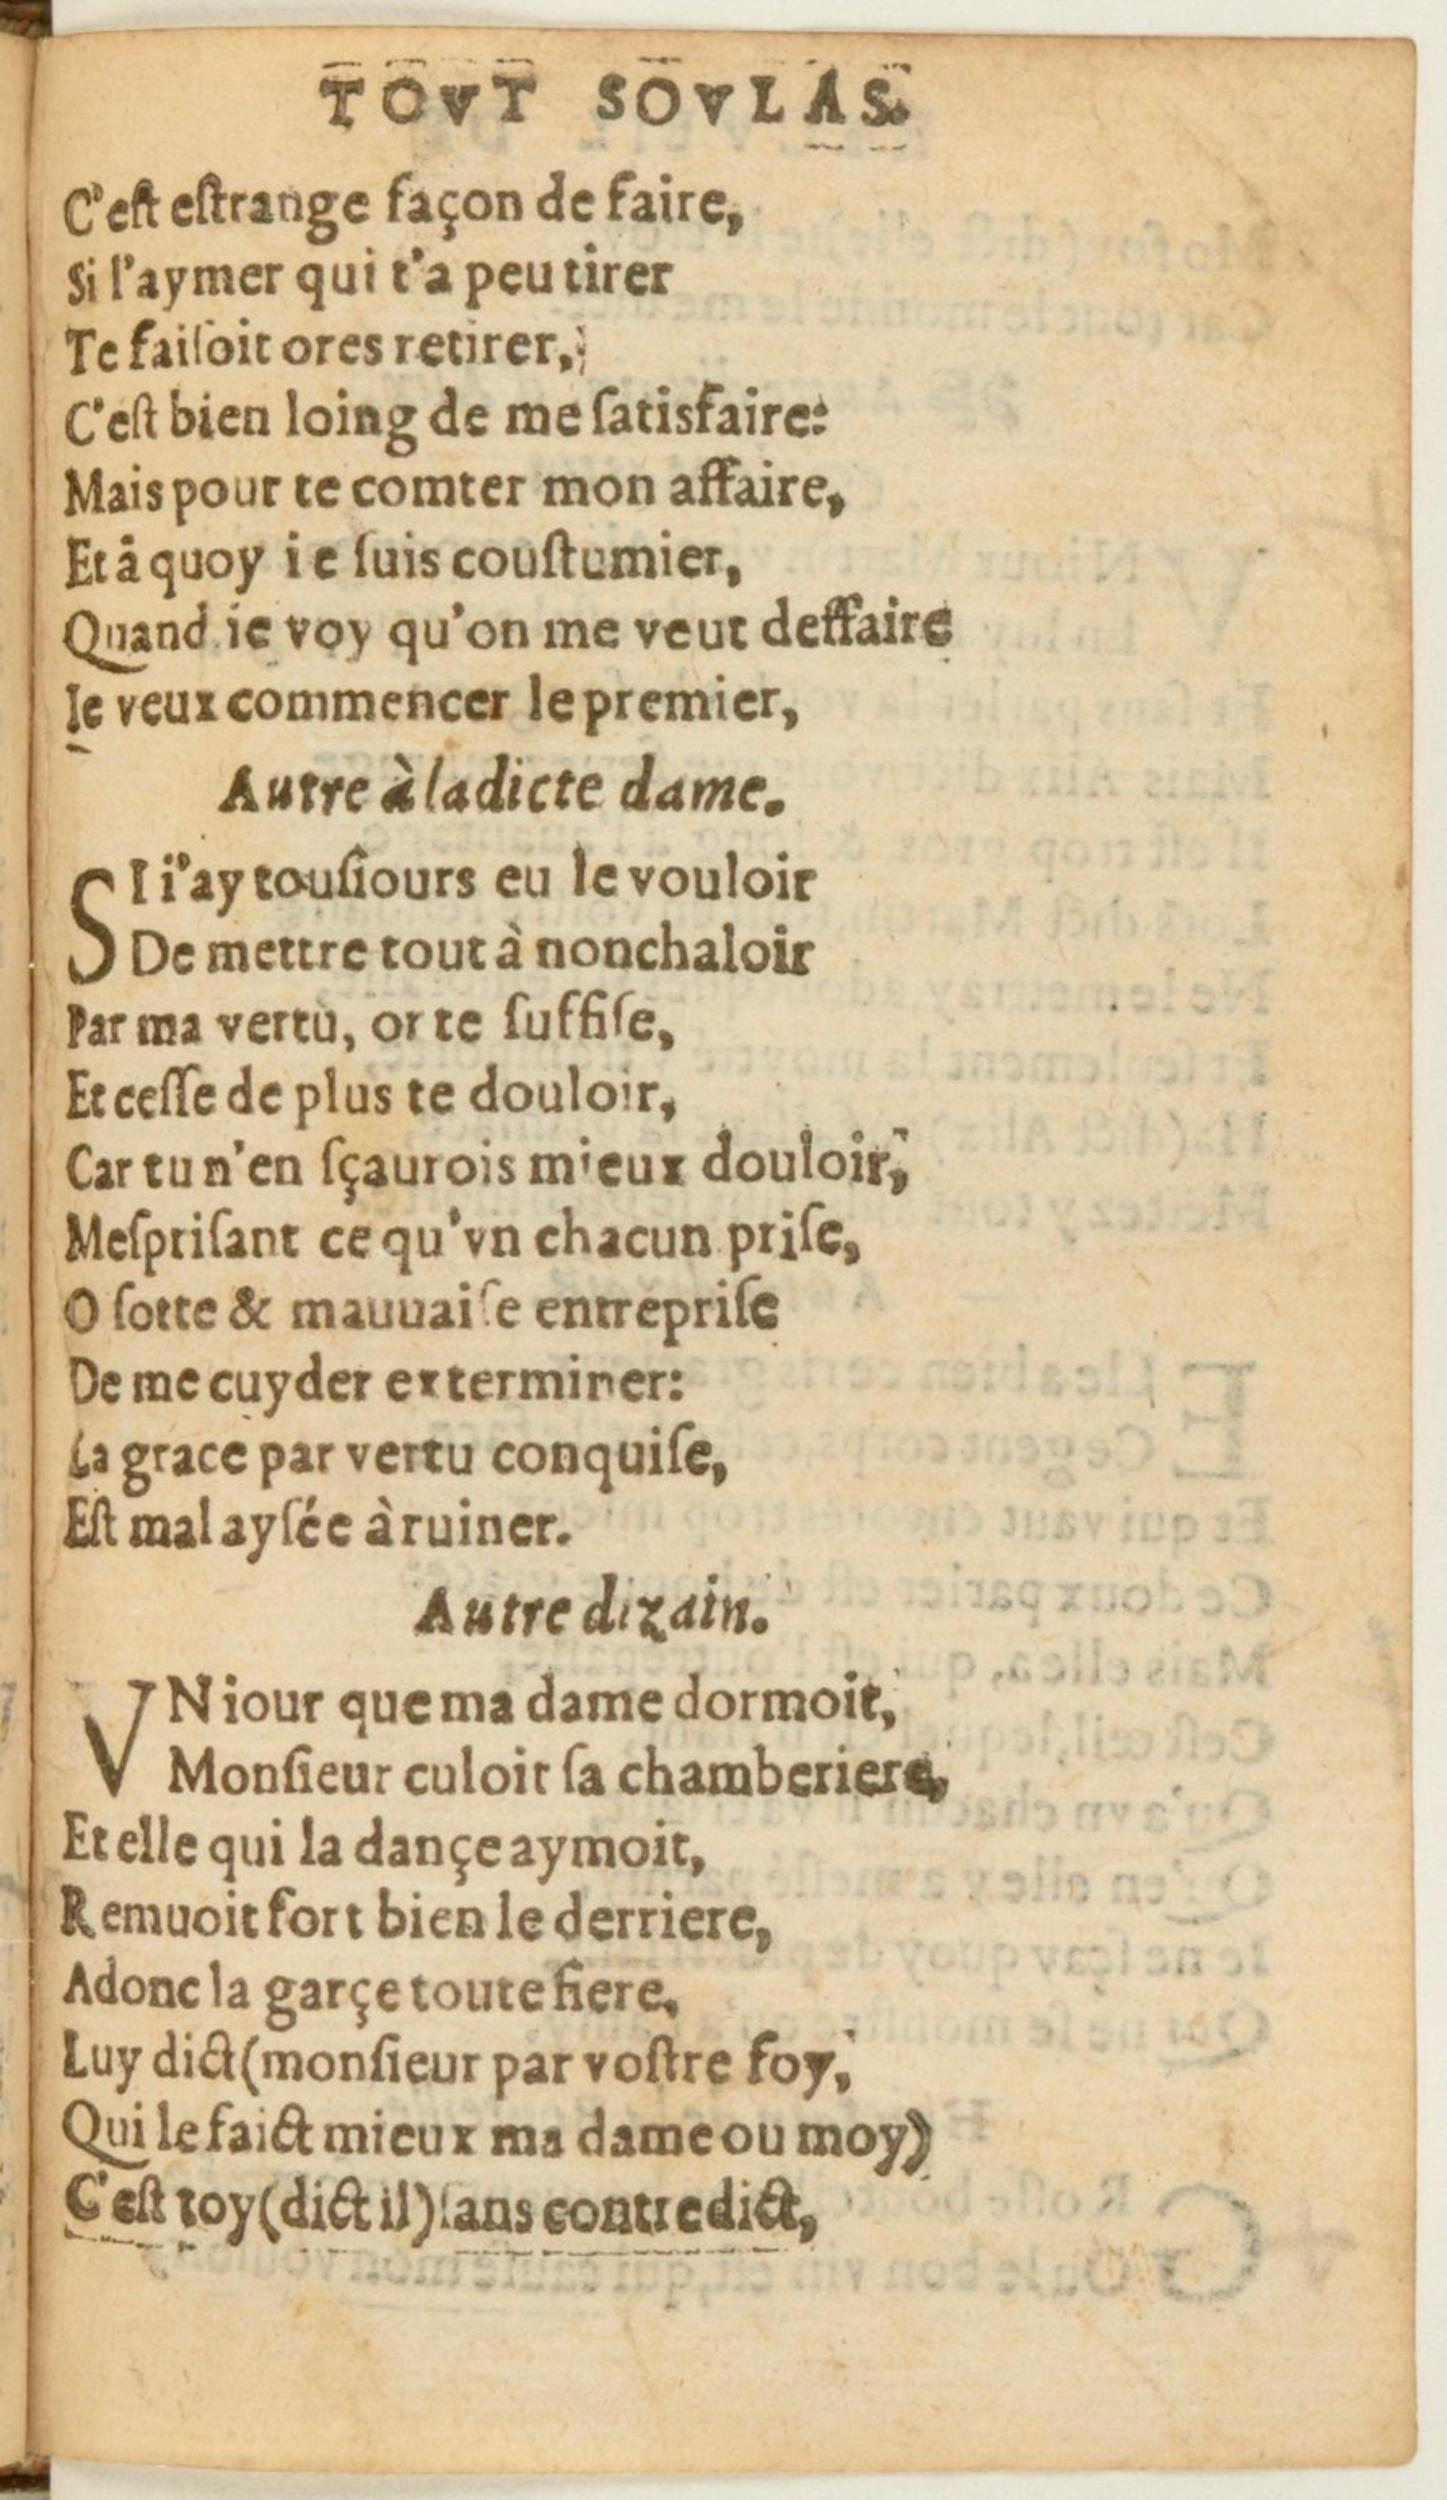 TOVT SOVLAS.
C'eſt eſtrange façon de faire,
Si l'aymer qui t'a peu tirer
Te faiſoit ores retirer,
C'eſt bien loing de me ſatisfaire:
Mais pour te comter mon affaire,
Et â quoy ie ſuis couſtumier,
Quand ie voy qu'on me veut deffaire
Ie veux commencer le premier,
Autre à ladicte dame.
SI i'ay touſiours eu le vouloir
De mettre tout à nonchaloir
Par ma vertu, or te ſuffiſe,
Et ceſſe de plus te douloir,
Car tu n'en ſçaurois mieux douloir,
Meſpriſant ce qu'vn chacun priſe,
O ſotte & mauuaiſe entrepriſe
De me cuyder exterminer:
La grace par vertu conquiſe,
Eſt mal ayſée à ruiner.
Autre dizain.
VN iour que ma dame dormoit,
Monſieur culoit ſa chamberiere,
Et elle qui la dançe aymoit,
Remuoit fort bien le derriere,
Adonc la garçe toute fiere,
Luy dict (monſieur par voſtre foy,
Qui le faict mieux ma dame ou moy)
C'eſt toy (dict il) ſans contredict,